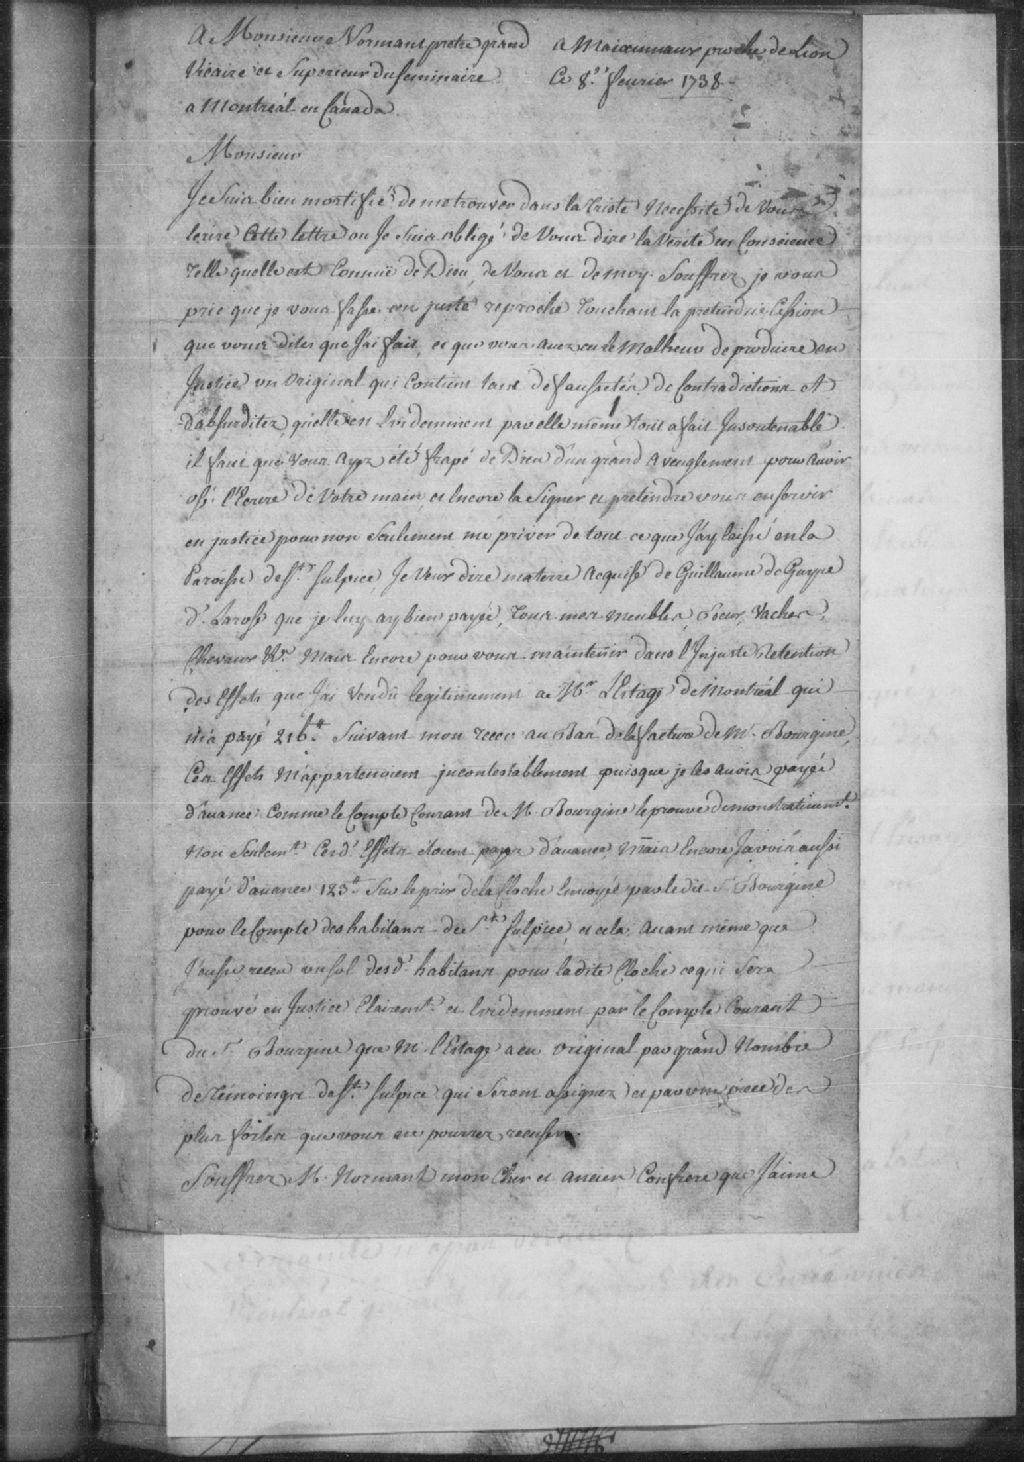 A Monsieur Normant pretre grand
Vicaire et Superieur du seminaire
a Montréal en Canada.
a Maiximieux proche de Lion
Ce 8e. fevrier 1738.
Monsieur
Je Suis bien mortifié de me trouver dans la triste Necessité de Vous
Ecrire Cette lettre ou Je suis obligé de Vous dire la Verité en Conscience
telle quelle est Connuë de Dieu, de Vous et de moy. Souffrez je vous
prie que je vous fasse un juste reproche touchant la pretenduë Cession
que vous dites que J'ai fait, et que vous avez eu le Malheur de produire en
Justice un Original qui Contient tant de faussetés de Contradictions et
d'absurditez, qu'elle est Evidemment par elle même tout a fait Insoutenable
il faut que Vous Ayez été frapé de Dieu d'un grand Aveuglement pour avoir
osé l'Ecrire de Votre main, et Encore la Signer et pretendre vous en servir
en justice pour non seulement me priver de tout ce que J'ay laissé en la
Paroisse de St. Sulpice, Je Veux dire ma terre Acquise de Guillaume de Guype
dt. Larose que je luy ay bien payée, tous mes meubles, Boeufs, Vaches,
Chevaux &c. Mais Encore pour vous maintenir dans l'Injuste Retention
des Effets que J'ai Vendu legitimement a Mr. LEstage de Montréal qui
m'a payé 216tt. Suivant mon recu au Bas de la facture de Mr. Bourgine,
Ces Effets M'appartenoient incontestablement puisque je les avois payés
d'avance Comme le Compte Courant de M. Bourgine le prouve demonstrativemt.
Non Seulemt. Cesd. Effets étoient payez d'avance, Mais Encore J'avois aussi
payé d'avance 123tt. Sur le prix de la Cloche Envoyée par le dit Sr. Bourgine
pour le Compte des habitans de St. Sulpice, et cela avant même que
J'eusse recu un sol desd. habitans pour la dite Cloche ce qui Sera
prouvé en Justice Clairemt. et Evidemment par le Compte Courant
du Sr. Bourgine que M. l'Estage a en original par grand Nombre
de témoings de St. Sulpice qui Seront assignez et par une piece des
plus fortes que vous ne pourrez recuser.
Souffrez M. Normant mon Cher et ancien Confrere que J'aime